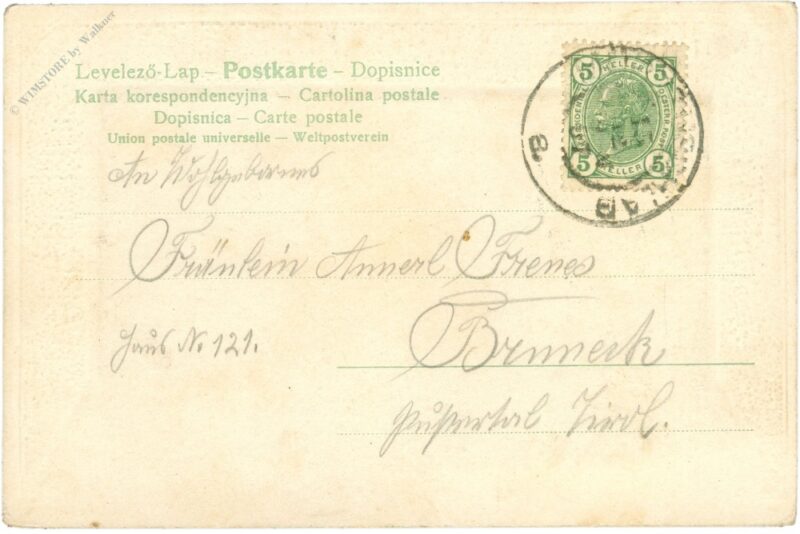 © WIMSTORE by Walkoer
Levelező-Lap – Postkarte – Dopisnice
Karta korespondencyjna – Cartolina postale
Dopisnica – Carte postale
Union postale universelle – Weltpostverein
5 HELLER 5
5 HELLER 5
a
An Wohlgebornes
Fräulein Annerl Frenes
Haus No 121.
Bruneck
Pustertal Tirol.